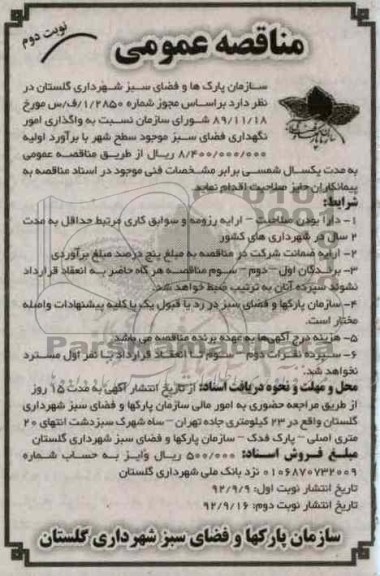 نوبت دوم
مناقصه عمومی
سازمان پارک ها و فضای سبز شهرداری گلستان در
نظر دارد براساس مجوز شماره ۱/۲۸۵۰/ف/س مورخ
۸۹/۱۱/۱۸ شورای سازمان نسبت به واگذاری امور
نگهداری فضای سبز موجود سطح شهر با برآورد اولیه
۸/۴۰۰/۰۰۰/۰۰۰ ریال از طریق مناقصه عمومی
به مدت یکسال شمسی برابر مشخصات فنی موجود در اسناد مناقصه به
پیمانکاران حایز صلاحیت اقدام نماید
شرایط:
۱- دارا بودن صلاحیت - ارایه رزومه و سوابق کاری مرتبط حداقل به مدت
۲ سال در شهرداری های کشور
۲- ارایه ضمانت شرکت در مناقصه به مبلغ پنج درصد مبلغ برآوردی
۳- برندگان اول - دوم - سوم مناقصه هر گاه حاضر به انعقاد قرارداد
نشوند سپرده آنان به ترتیب ضبط خواهد شد.
۴- سازمان پارکها و فضای سبز در رد یا قبول یک یا کلیه پیشنهادات واصله
مختار است.
۵- هزینه درج آگهی‌ها به عهده برنده مناقصه می باشد
۶- سپرده نفرات دوم - سوم تا انعقاد قرارداد با نفر اول مسترد
نخواهد شد.
محل و مهلت و نحوه دریافت اسناد: از تاریخ انتشار آگهی به مدت ۱۵ روز
از طریق مراجعه حضوری به امور مالی سازمان پارکها و فضای سبز شهرداری
گلستان واقع در ۲۳ کیلومتری جاده تهران - ساوه شهرک سبزدشت انتهای ۲۰
متری اصلی - پارک فدک - سازمان پارکها و فضای سبز شهرداری گلستان
مبلغ فروش اسناد: ۵۰۰/۰۰۰ ریال واریز به حساب شماره
۰۱۰۶۸۷۰۷۳۲۰۰۹ نزد بانک ملی شهرداری گلستان
تاریخ انتشار نوبت اول: ۹۲/۹/۹
تاریخ انتشار نوبت دوم: ۹۲/۹/۱۶
سازمان پارکها و فضای سبز شهرداری گلستان